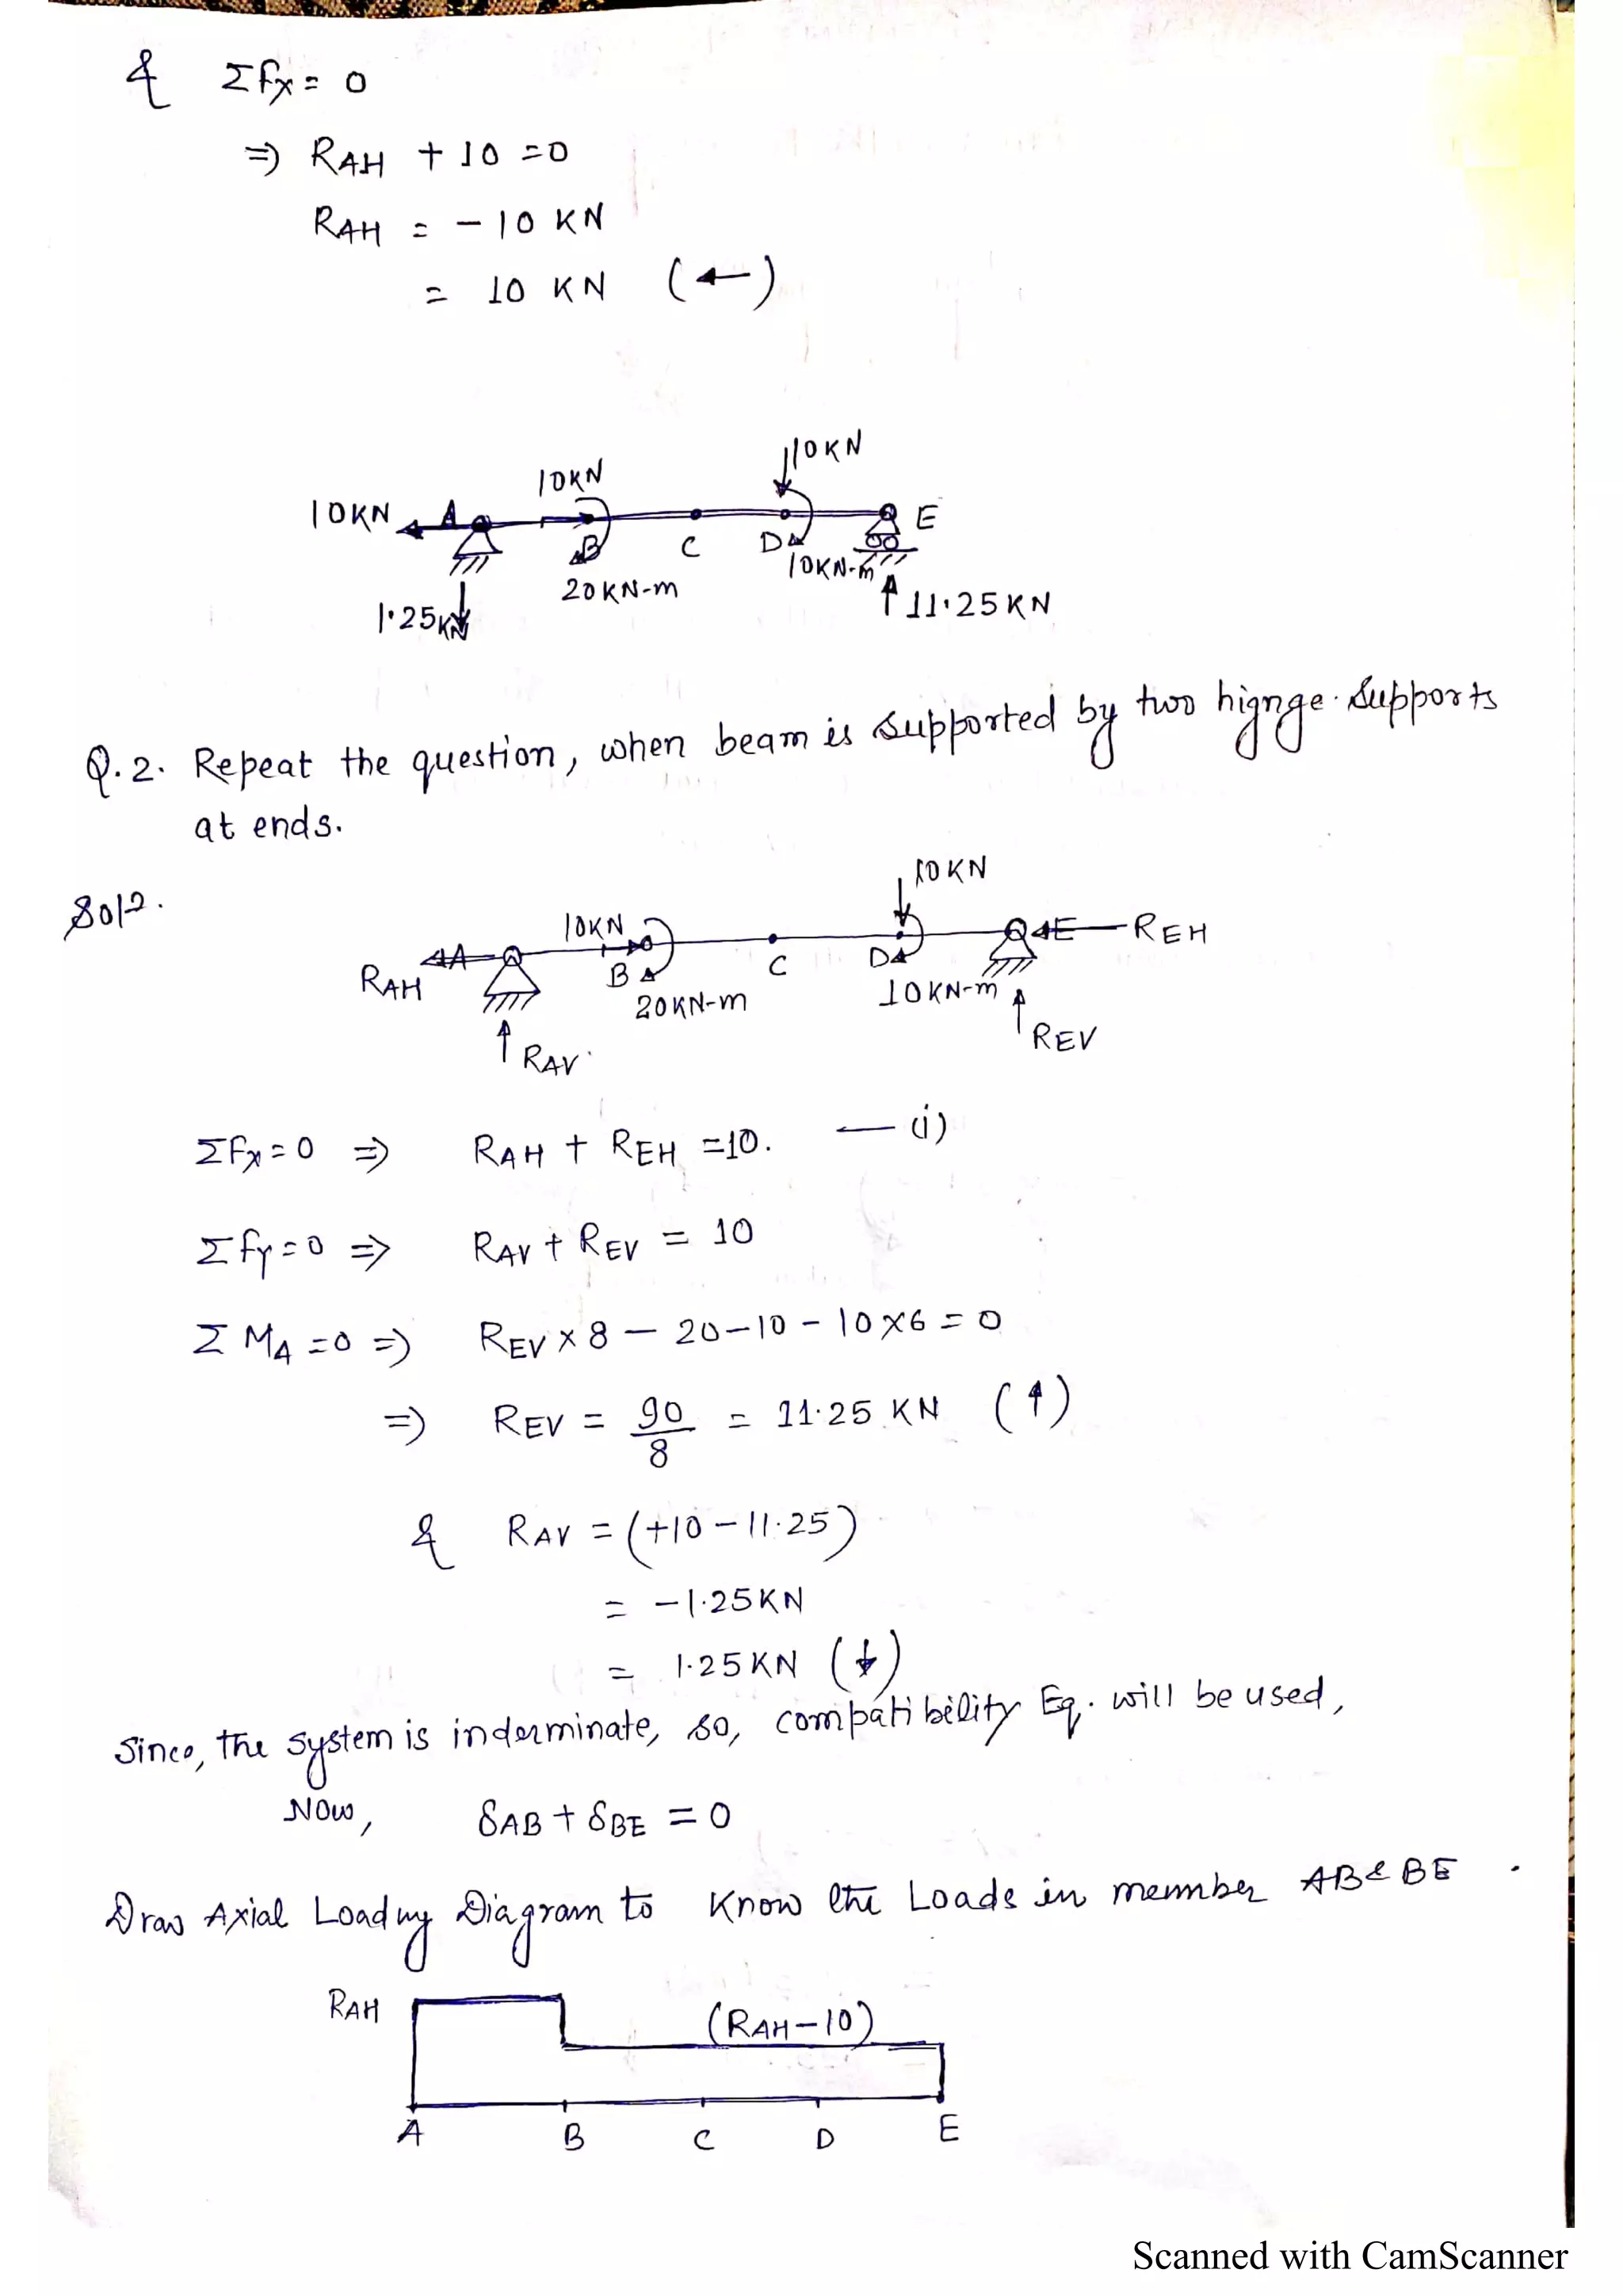 & ΣFx = 0
⇒ RAH + 10 = 0
RAH = - 10 KN
= 10 KN (←)
10KN
10KN
10KN A
E
B C D
20KN-m
10KN-m
1.25KN
↑ 11.25KN
Q.2. Repeat the question, when beam is supported by two hignge supports
at ends.
Soln.
10KN
10KN
A
E REH
RAH
B C D
20KN-m
10KN-m
↑ RAV
↑ REV
ΣFx = 0 ⇒ RAH + REH = 10. — (i)
ΣFy = 0 ⇒ RAV + REV = 10
ΣMA = 0 ⇒ REV × 8 - 20 - 10 - 10 × 6 = 0
⇒ REV = 90/8 = 11.25 KN (↑)
& RAV = (+10 - 11.25)
= -1.25KN
= 1.25KN (↓)
Since, the system is inderminate, so, compatibility Eq. will be used,
Now, δAB + δBE = 0
Draw Axial Loading Diagram to Know the Loads in member AB & BE.
RAH
(RAH - 10)
A B C D E
Scanned with CamScanner